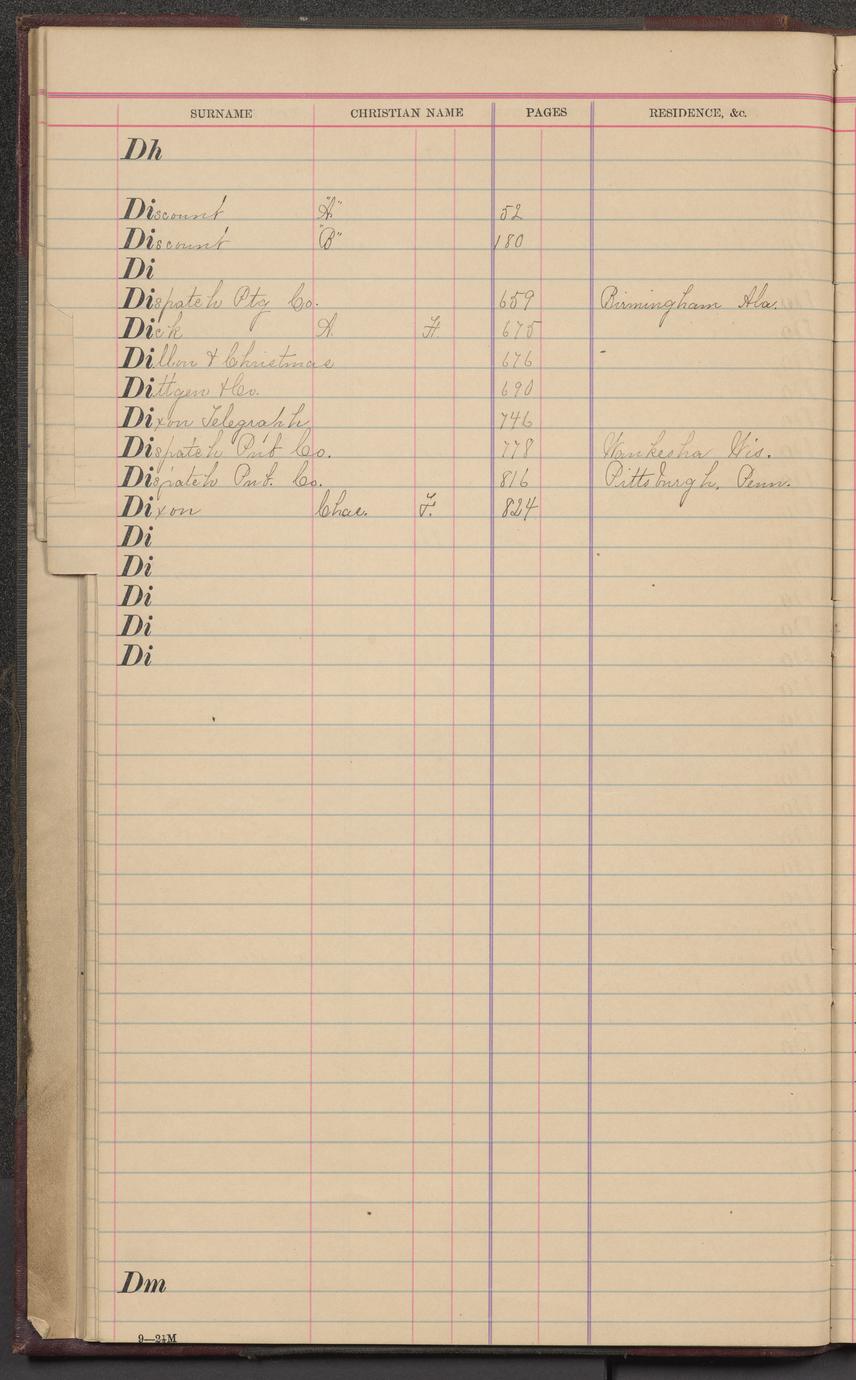 SURNAME CHRISTIAN NAME PAGES RESIDENCE, &c.
Dh
Discount "A" 52
Discount "B" 180
Di
Dispatch Ptg Co. 659 Birmingham Ala.
Dick A. F. 675
Dillon & Christmas 676
Dittgen & Co. 690
Dixon Telegraph 746
Dispatch Pub Co. 778 Waukesha Wis.
Dispatch Pub. Co. 816 Pittsburgh, Penn.
Dixon Chas. F. 824
Di
Di
Di
Di
Di
Dm
9—2½M